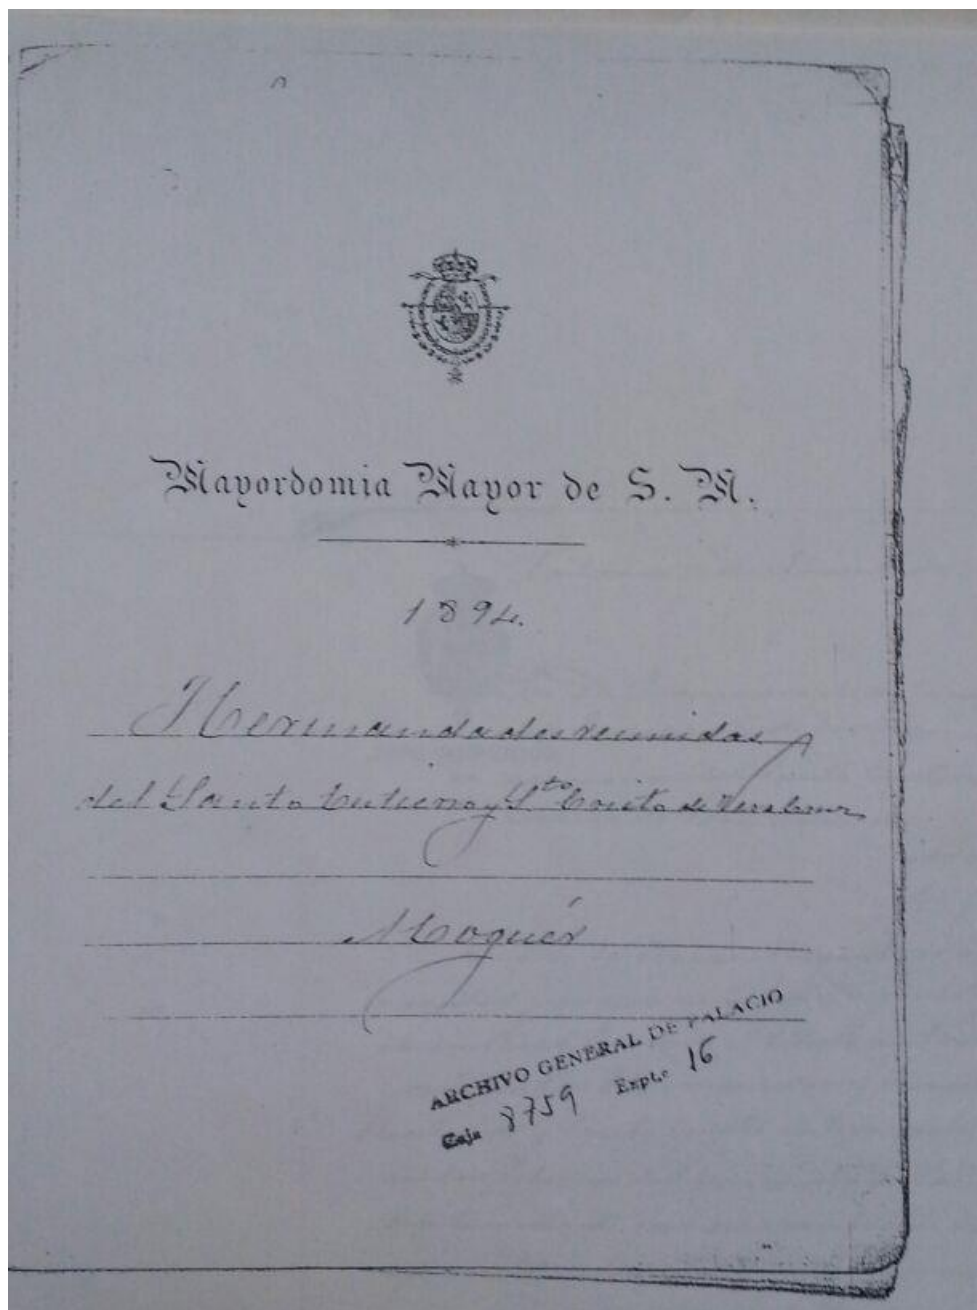 Mayordomia Mayor de S. M.
1894.
Hermandades reunidas
del Santo Entierro y Sto Cristo de Vera Cruz
Moguér
ARCHIVO GENERAL DE PALACIO
Caja 8759 Expte 16